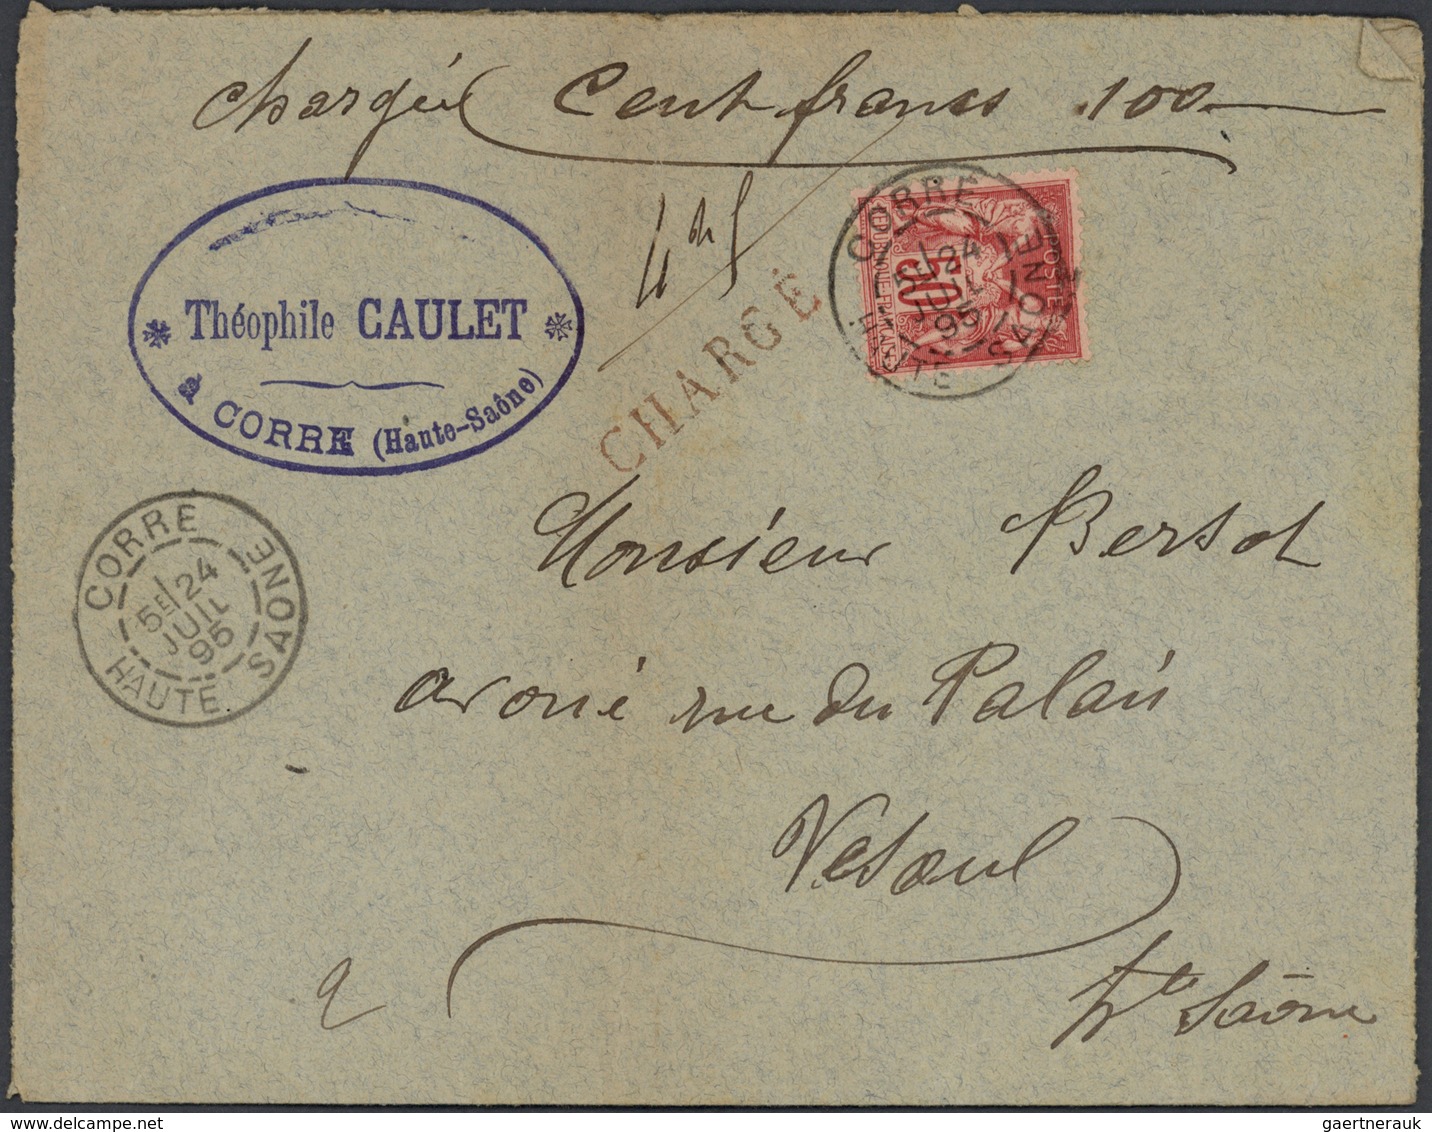 Chargée Cent francs 100
Théophile CAULET
à CORRE (Haute-Saône)
CHARGÉ
CORRE
24
JUIL
95
HAUTE SAONE
POSTES
50
REPUBLIQUE FRANCAISE
CORRE
5E/24
JUIL
95
HAUTE SAONE
Monsieur Bersot
avoué rue du Palais
Vesoul
Hte Saône
gaertnerauk